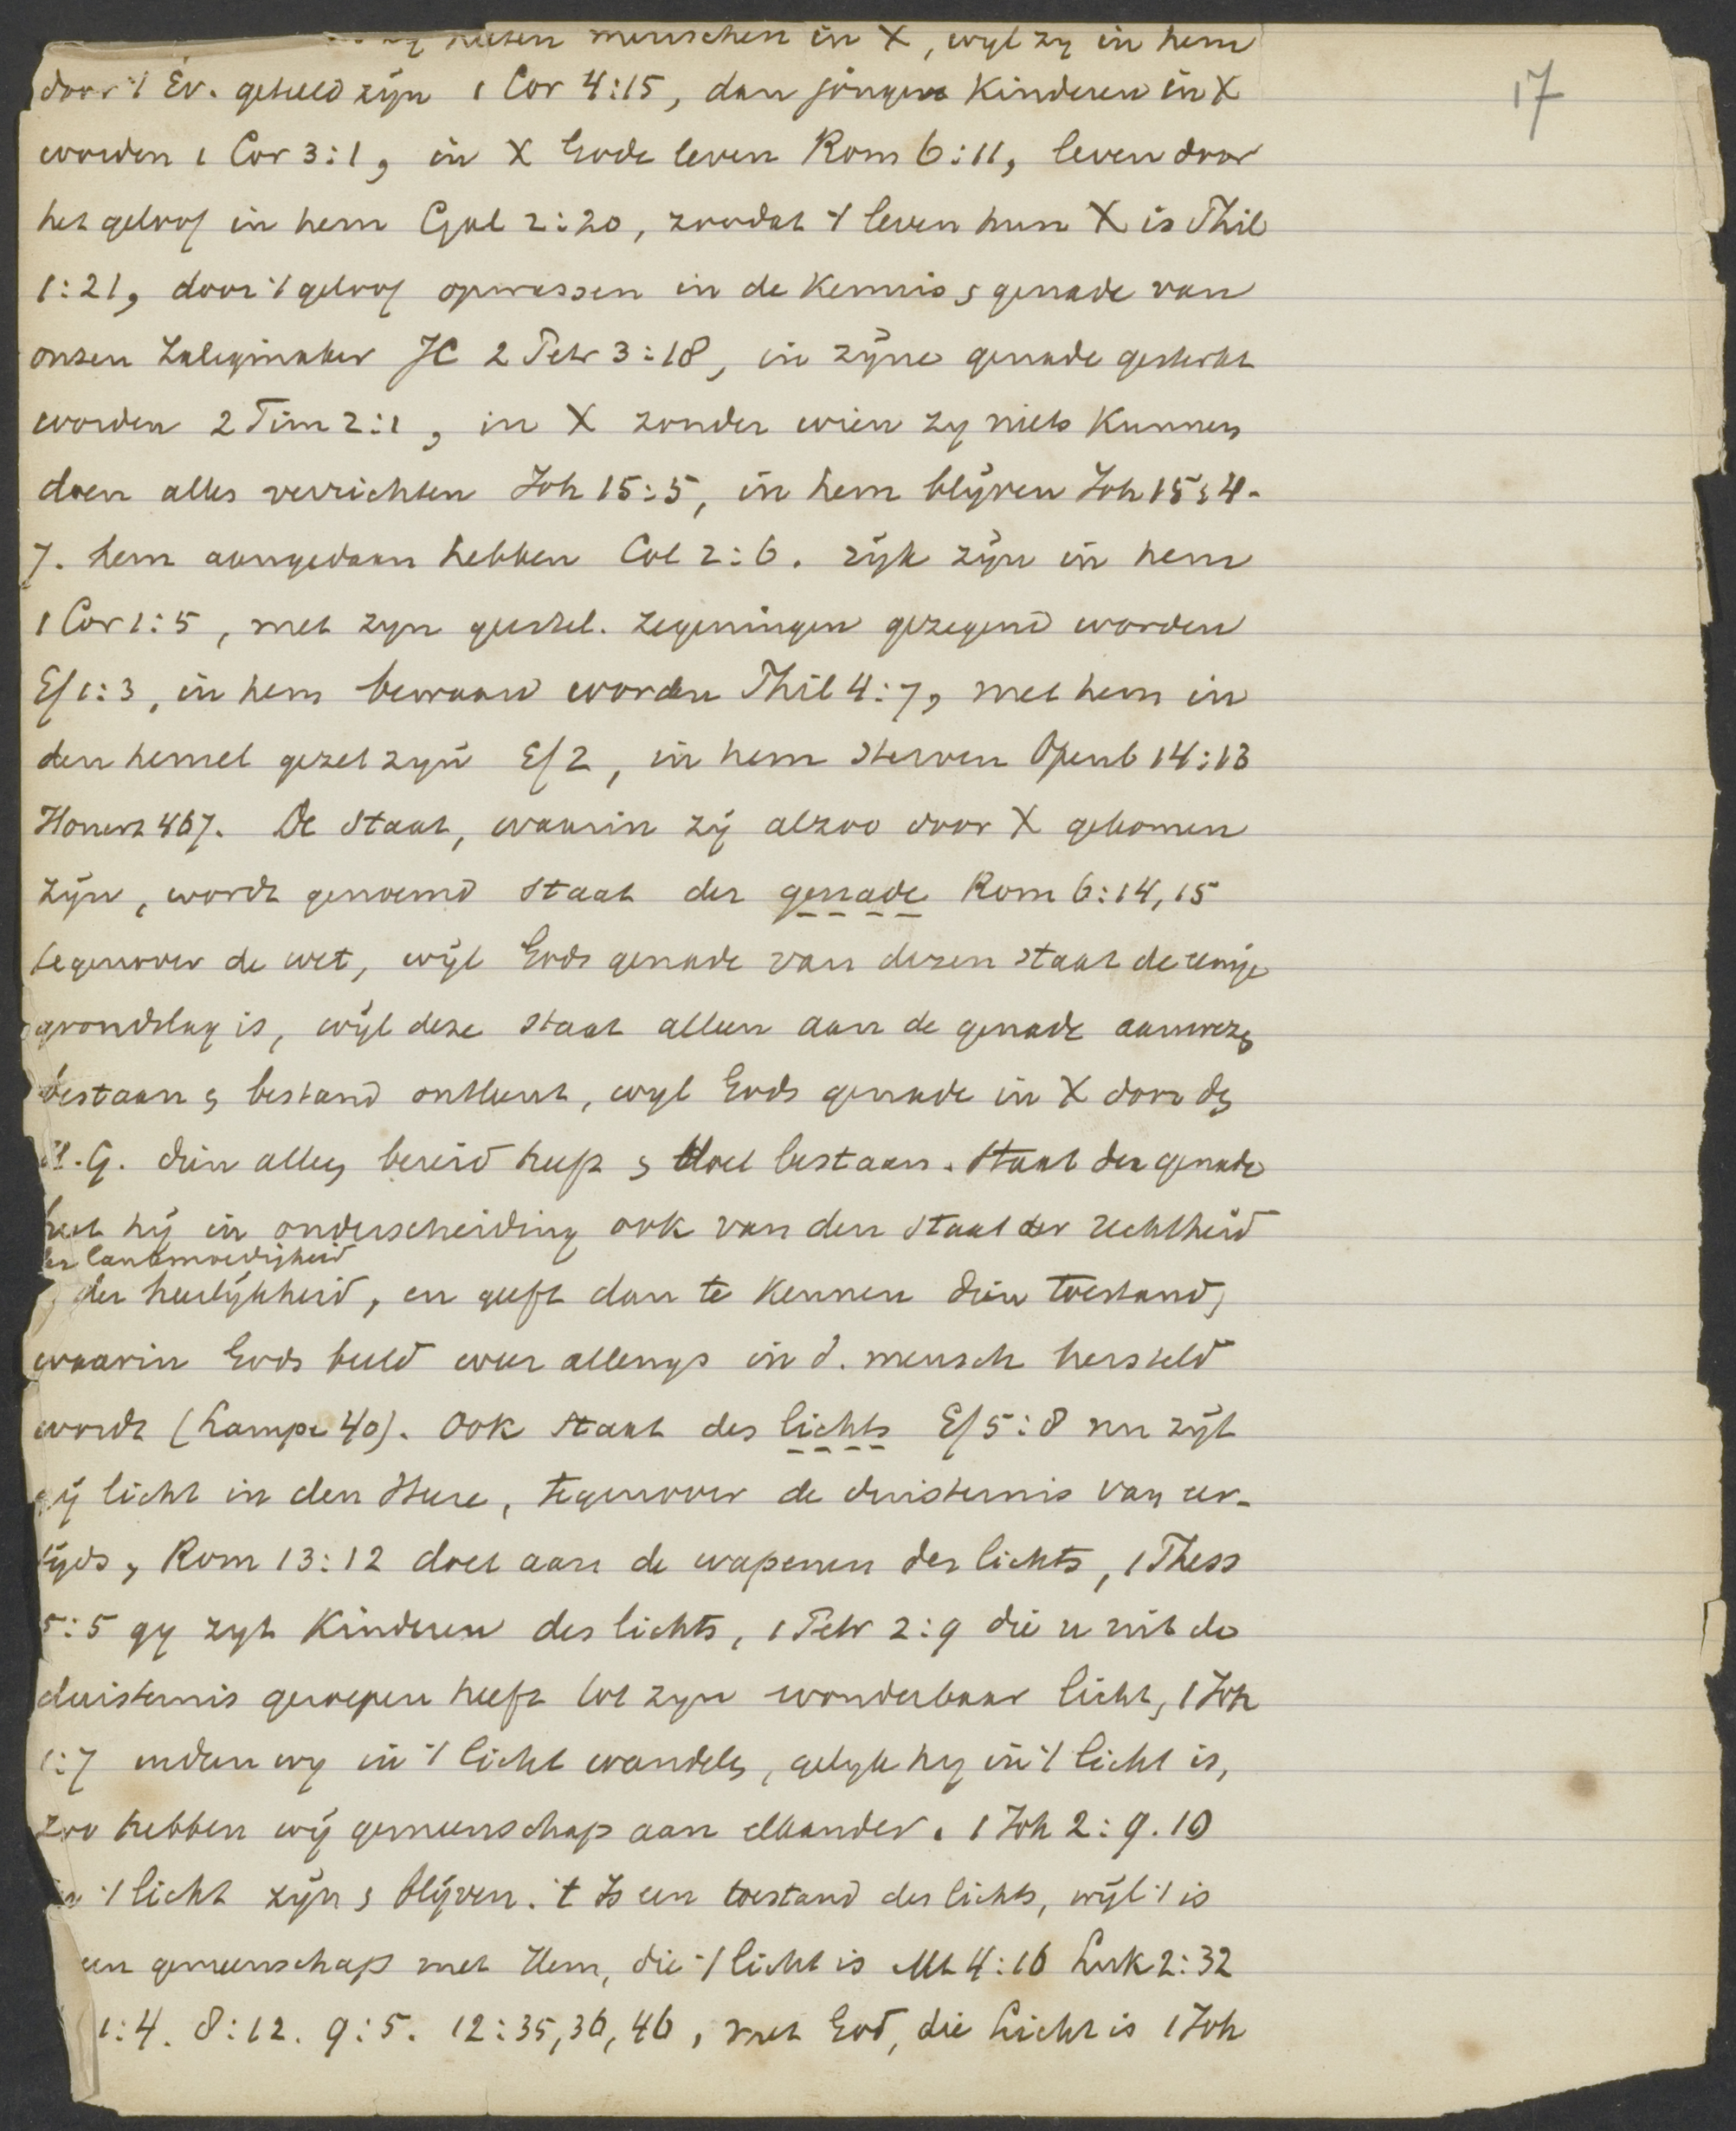 heten menschen in X, wyl zy in hem
17
door 't Ev. geteeld zijn 1 Cor 4:15, dan jonge Kinderen in X
worden 1 Cor 3:1, in X Gode leven Rom 6:11, leven door
het geloof in hem Gal 2:20, zoodat 't leven hun X is Phil
1:21, door 't geloof opwassen in de Kennis & genade van
onzen Zaligmaker JC 2 Petr 3:18, in zijne genade gesterkt
worden 2 Tim 2:1, in X zonder wien zy niets Kunnen
doen alles verrichten Joh 15:5, in hem blijven Joh 15:4-
7. hem aangedaan hebben Col 2:6. rijk zijn in hem
1 Cor 1:5, met zyn geestel. zegeningen gezegend worden
Ef 1:3, in hem bewaard worden Phil 4:7, met hem in
den hemel gezet zyn Ef 2, in hem sterven Openb 14:13
Honert 467. De Staat, waarin zij alzoo door X gekomen
zijn, wordt genoemd Staat der genade Rom 6:14, 15
tegenover de wet, wijl Gods genade van dezen staat de eenige
grondslag is, wijl deze staat alleen aan de genade aanwezen
bestaan & bestand ontleent, wyl Gods genade in X door den
H.G. dien alleen bereid heeft & doet bestaan. Staat der genade
heet hij in onderscheiding ook van den Staat der rechtheid
der lankmoedigheid
& der heerlijkheid, en geeft dan te Kennen dien toestand,
waarin Gods beeld weer allengs in d. mensch hersteld
wordt (Lampe 40). Ook Staat des lichts Ef 5:8 nu zijt
gij licht in den Heere, tegenover de duisternis van eer-
tijds, Rom 13:12 doet aan de wapenen des lichts, 1 Thess
5:5 gy zyt Kinderen des lichts, 1 Petr 2:9 die u uit de
duisternis geroepen heeft tot zyn wonderbaar licht, 1 Joh
1:7 indien wy in 't licht wandelen, gelyk hy in 't licht is,
zoo hebben wij gemeenschap aan elkander. 1 Joh 2:9.10
in 't licht zijn & blijven. 't Is een toestand des lichts, wijl 't is
een gemeenschap met Hem, die 't licht is Mt 4:16 Luk 2:32
1:4. 8:12. 9:5. 12:35, 36, 46, met God, die Licht is 1 Joh